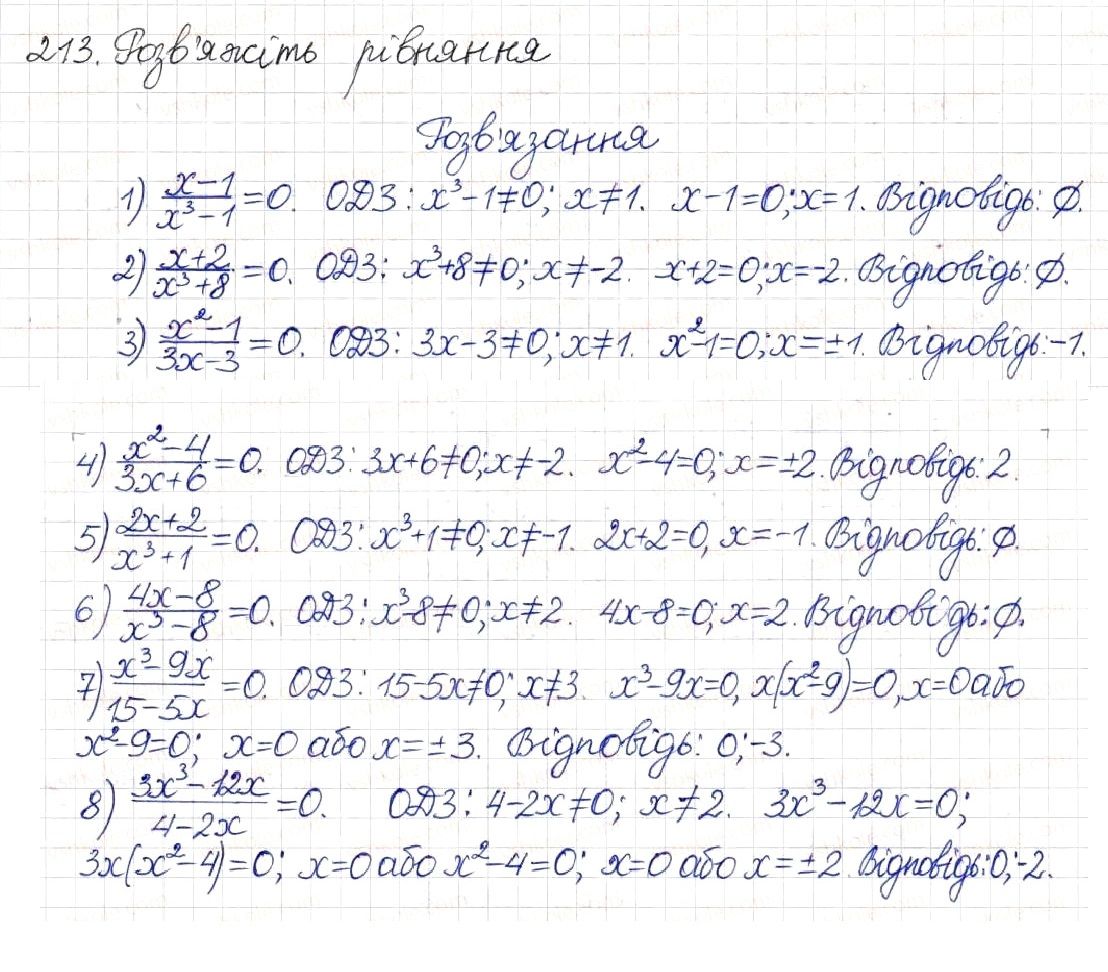 213. Розв'яжіть рівняння
Розв'язання
1) (x-1)/(x³-1)=0. ОДЗ: x³-1≠0; x≠1. x-1=0; x=1. Відповідь: ∅.
2) (x+2)/(x³+8)=0. ОДЗ: x³+8≠0; x≠-2. x+2=0; x=-2. Відповідь: ∅.
3) (x²-1)/(3x-3)=0. ОДЗ: 3x-3≠0; x≠1. x²-1=0; x=±1. Відповідь: -1.
4) (x²-4)/(3x+6)=0. ОДЗ: 3x+6≠0; x≠-2. x²-4=0; x=±2. Відповідь: 2.
5) (2x+2)/(x³+1)=0. ОДЗ: x³+1≠0; x≠-1. 2x+2=0, x=-1. Відповідь: ∅.
6) (4x-8)/(x³-8)=0. ОДЗ: x³-8≠0; x≠2. 4x-8=0; x=2. Відповідь: ∅.
7) (x³-9x)/(15-5x)=0. ОДЗ: 15-5x≠0; x≠3. x³-9x=0, x(x²-9)=0, x=0 або
x²-9=0; x=0 або x=±3. Відповідь: 0; -3.
8) (3x³-12x)/(4-2x)=0. ОДЗ: 4-2x≠0; x≠2. 3x³-12x=0;
3x(x²-4)=0; x=0 або x²-4=0; x=0 або x=±2. Відповідь: 0; -2.